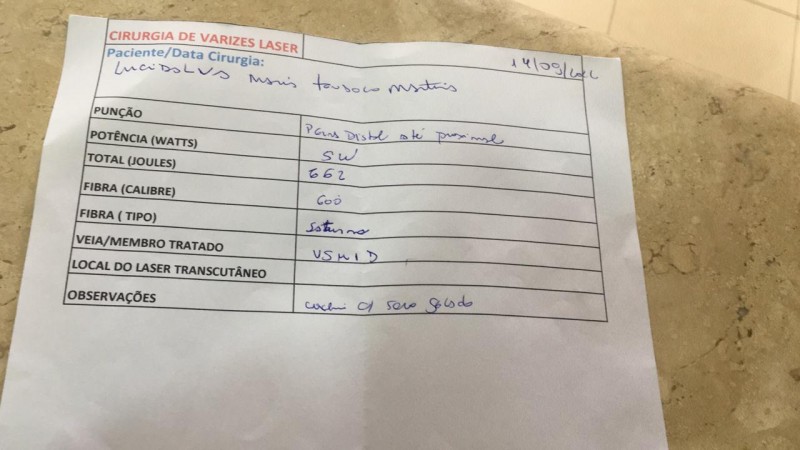 CIRURGIA DE VARIZES LASER
Paciente/Data Cirurgia: 14/09/
Maria Martins
PUNÇÃO Perna Distal até proximal
POTÊNCIA (WATTS) 5W
TOTAL (JOULES) 662
FIBRA (CALIBRE) 600
FIBRA ( TIPO)
VEIA/MEMBRO TRATADO VSMID
LOCAL DO LASER TRANSCUTÂNEO
OBSERVAÇÕES c/ soro gelado